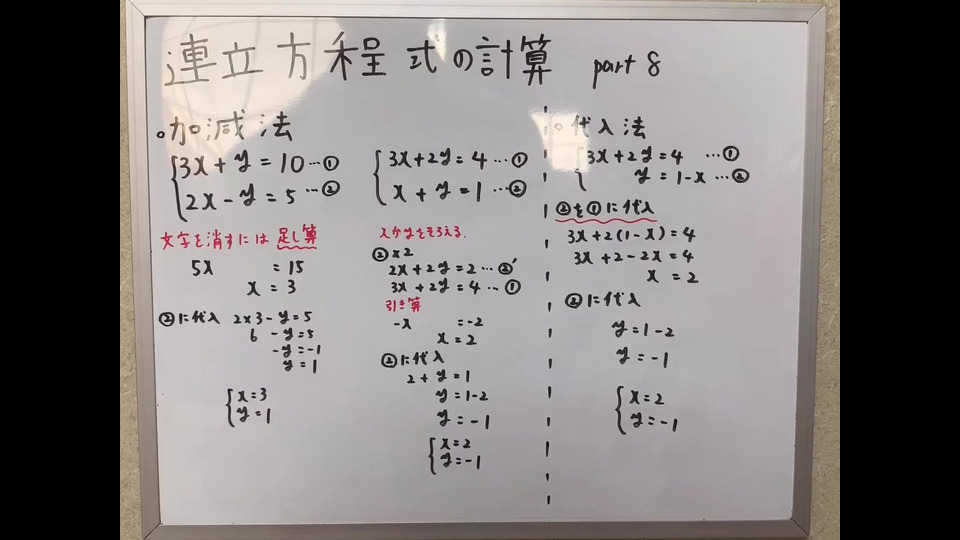 連立方程式の計算 part 8
○加減法
3x+y=10…①
2x-y=5…②
文字を消すには 足し算
5x =15
x=3
②に代入 2×3-y=5
6-y=5
-y=-1
y=1
x=3
y=1
3x+2y=4…①
x+y=1…②
xかyをそろえる.
②×2
2x+2y=2…②'
3x+2y=4…①
引き算
-x =-2
x=2
②に代入
2+y=1
y=1-2
y=-1
x=2
y=-1
○代入法
3x+2y=4 …①
y=1-x…②
②を①に代入
3x+2(1-x)=4
3x+2-2x=4
x=2
②に代入
y=1-2
y=-1
x=2
y=-1